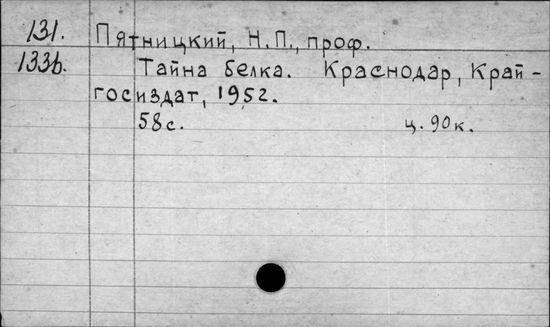 131.
Пятницкий, Н.П., проф.
133b.
Тайна белка. Краснодар, Край-
госиздат, 1952.
58с. ц. 90к.